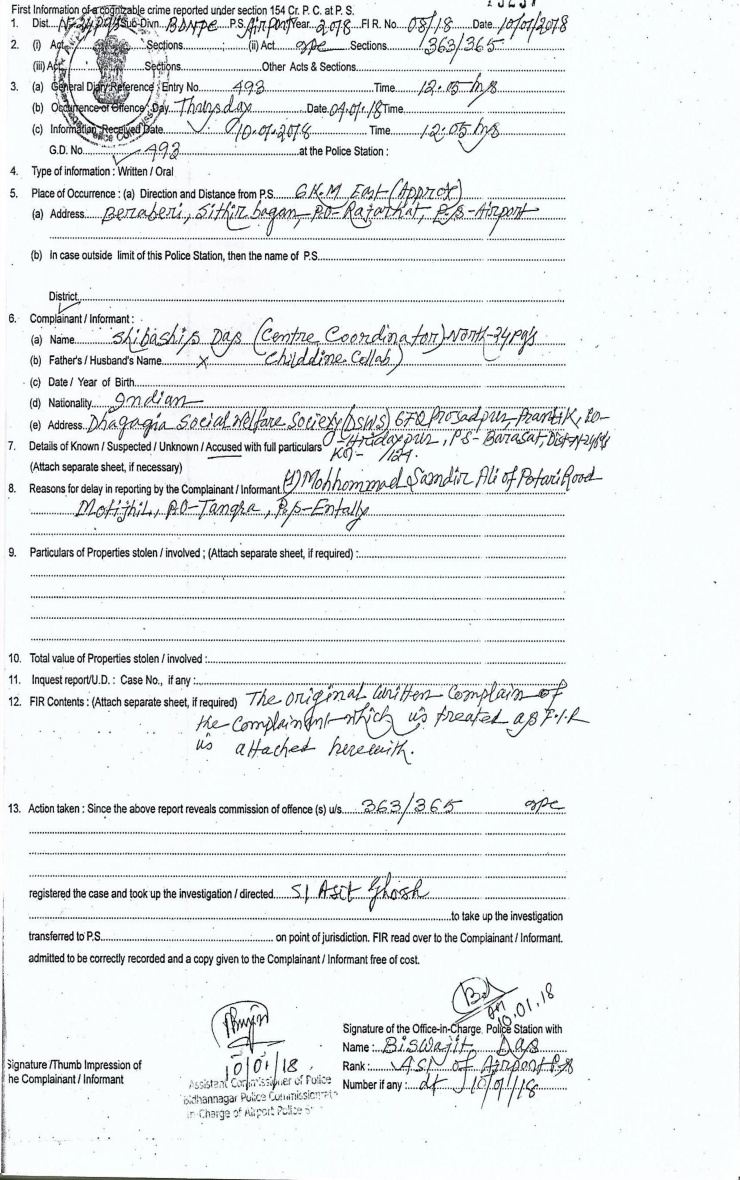 First Information of a cognizable crime reported under section 154 Cr. P. C. at P. S.
1. Dist. N-24 PGS Sub-Divn. BDNPC P.S. Airport Year 2018 F I R. No. 08/18 Date 10/01/2018
2. (i) Act Sections ; (ii) Act IPC Sections 363/365
(iii) Act Other Acts & Sections
3. (a) General Diary Reference : Entry No 493 Time 12.05 hrs
(b) Occurrence of Offence : Day Thursday Date 04.01.18 Time
(c) Information Received Date 10.01.2018 Time 12:05 hrs
G.D. No. 493 at the Police Station :
4. Type of information : Written / Oral
5. Place of Occurrence : (a) Direction and Distance from P.S. 6 K.M East (Approx)
(a) Address Beraberi, Sithir bagan, P.O- Rajarhat, P/S - Airport
(b) In case outside limit of this Police Station, then the name of P.S.
District
6. Complainant / Informant :
(a) Name Shibashis Das (Centre Coordinator) North-24 Pg's
(b) Father's / Husband's Name x Childdine Collab)
(c) Date / Year of Birth
(d) Nationality Indian
(e) Address Dhagagia Social Welfare Society (DSWS) 67 Prosadpur, Prantik, P.O-
7. Details of Known / Suspected / Unknown / Accused with full particulars Hridaypur, P.S- Barasat, Dist-N-24PGS
(Attach separate sheet, if necessary) Kol- /124.
8. Reasons for delay in reporting by the Complainant / Informant (1) Mohhommad Samdir Ali of Potari Road
Motijhil, P.O-Tangra, P/S-Entally
9. Particulars of Properties stolen / involved ; (Attach separate sheet, if required) :
10. Total value of Properties stolen / involved :
11. Inquest report/U.D. : Case No., if any :
12. FIR Contents : (Attach separate sheet, if required) The original written Complain of
the complainant which is treated as F.I.R
is attached herewith.
13. Action taken : Since the above report reveals commission of offence (s) u/s. 363/365 IPC
registered the case and took up the investigation / directed SI Asit Ghosh
to take up the investigation
transferred to P.S. on point of jurisdiction. FIR read over to the Complainant / Informant.
admitted to be correctly recorded and a copy given to the Complainant / Informant free of cost.
10.01.18
Signature of the Office-in-Charge, Police Station with
Name : Biswajit Das
10/01/18
Signature /Thumb Impression of
the Complainant / Informant
Rank : ASI of Airport P.S
Number if any : dt 10/01/18
Assistant Commissioner of Police
Bidhannagar Police Commissionerate
In-Charge of Airport Police